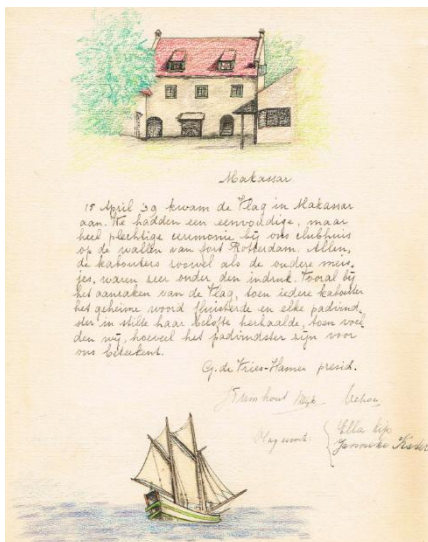 Makassar
15 April 39 kwam de Vlag in Makassar
aan. We hadden een eenvoudige, maar
heel plechtige ceremonie bij ons clubhuis
op de wallen van fort Rotterdam. Allen,
de kabouters zoowel als de oudere meis-
jes, waren zeer onder den indruk. Vooral bij
het aanraken van de Vlag, toen iedere kabouter
het geheime woord fluisterde en elke padvind-
ster in stilte haar belofte herhaalde, toen voel
den wij, hoeveel het padvindster zijn voor
ons beteekent.
G. de Vries-Hamer presid.
Ella
Janneke